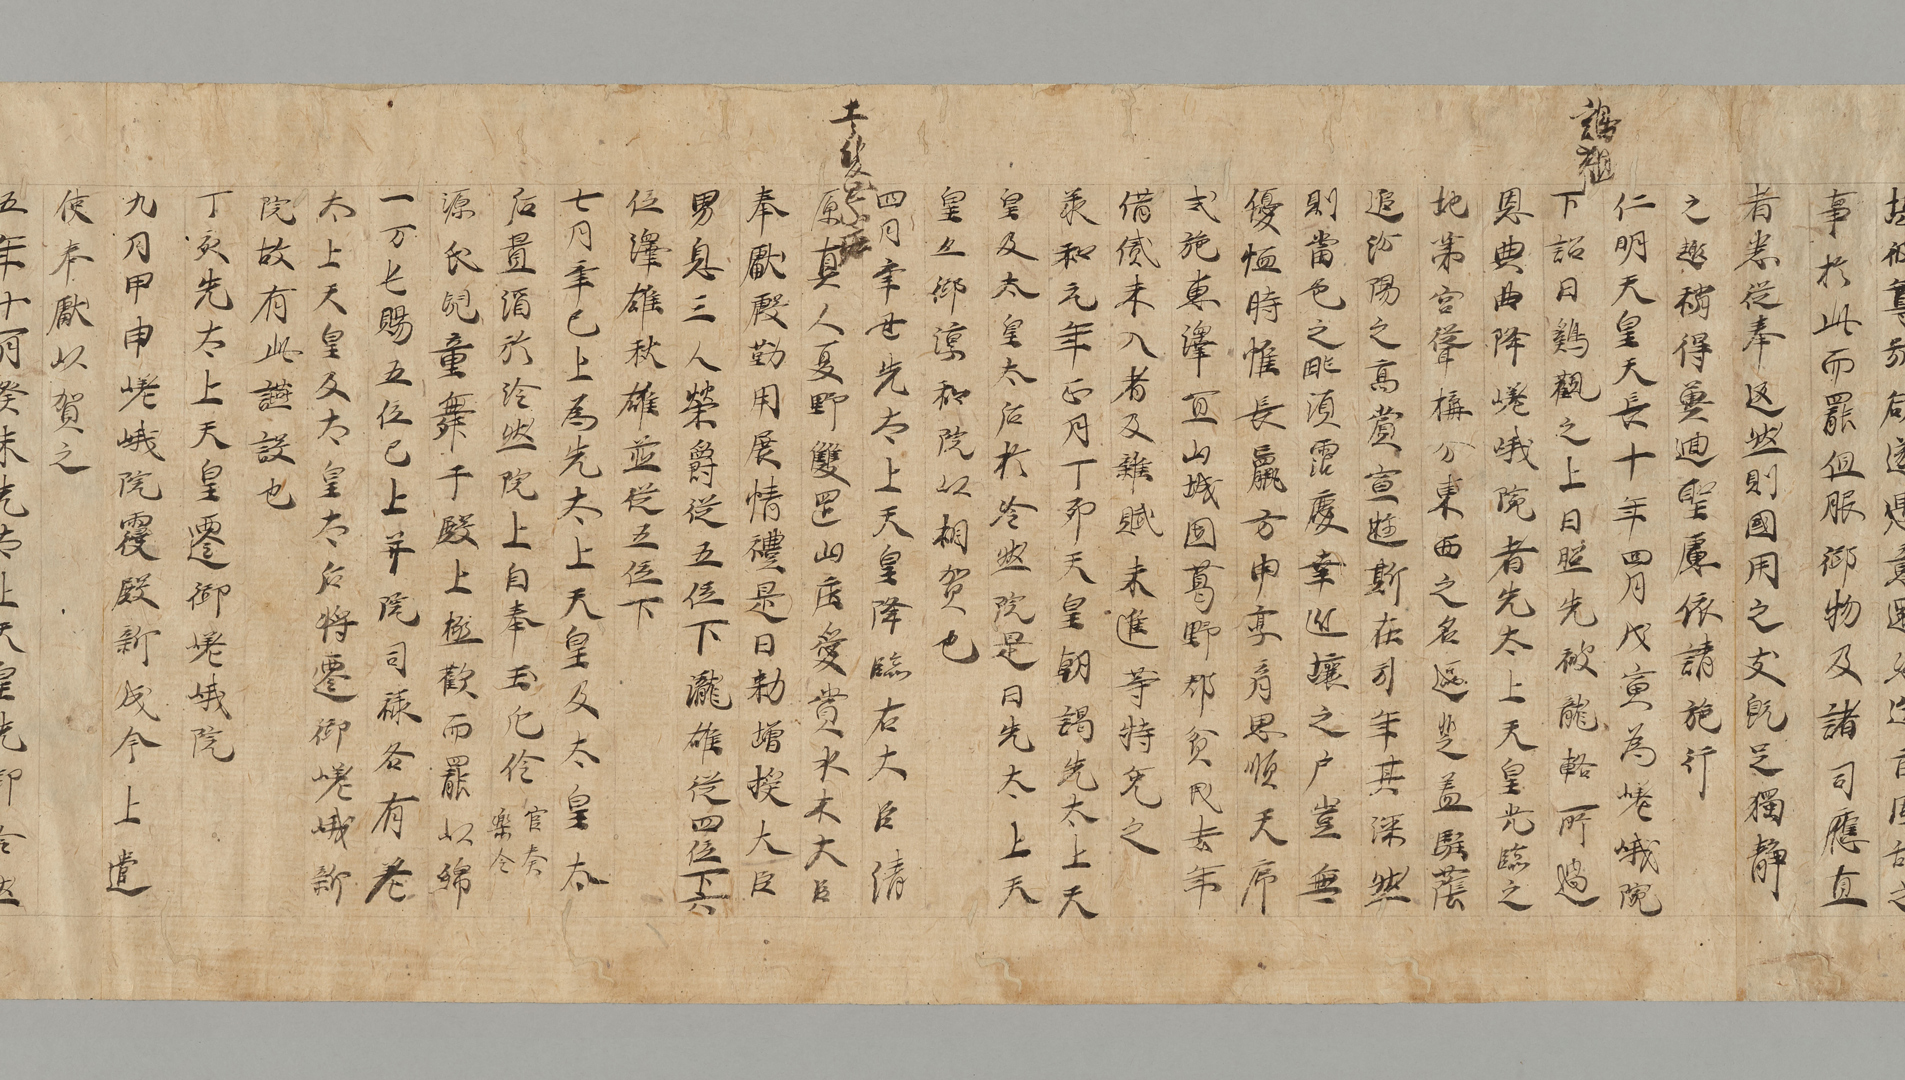 事於此而罷但服御物及諸司應直
者悉從奉返然則國用之支既足獨静
之趣稍得兼迪聖慮依請施行
仁明天皇天長十年四月戊寅為嵯峨院
下詔曰鶏觀之上日照先被龍輅所過
恩典曲降嵯峨院者先太上天皇光臨之
地第宮聳構分東西之名區埜蓋駐蔭
追汾陽之高賞宣遊斯在引年其深然
則當邑之甿須霑慶幸近壤之戶豈無
優恤時惟長羸方申亭育思順天序
式施惠澤宜山城國葛野郡貧民去年
借貸未入者及雜賦未進等特免之
承和元年正月丁卯天皇朝謁先太上天
皇及太皇太后於冷然院是日先太上天
皇之御淳和院以相賀也
四月辛丑先太上天皇降臨右大臣清
原真人夏野雙罡山庄愛賞水木大臣
奉獻殷勤用展情禮是日勅增授大臣
男息三人榮爵從五位下瀧雄從四位下六
位澤雄秋雄並從五位下
七月辛巳上為先太上天皇及太皇太
后置酒於冷然院上自奉玉卮伶官奏樂令
源氏兒童舞于殿上極歡而罷以綿
一万七賜五位已上并院司祿各有差
太上天皇及太皇太后將遷御嵯峨新
院故有此讌設也
丁亥先太上天皇遷御嵯峨院
九月甲申嵯峨院寢殿新成今上遣
使奉獻以賀之